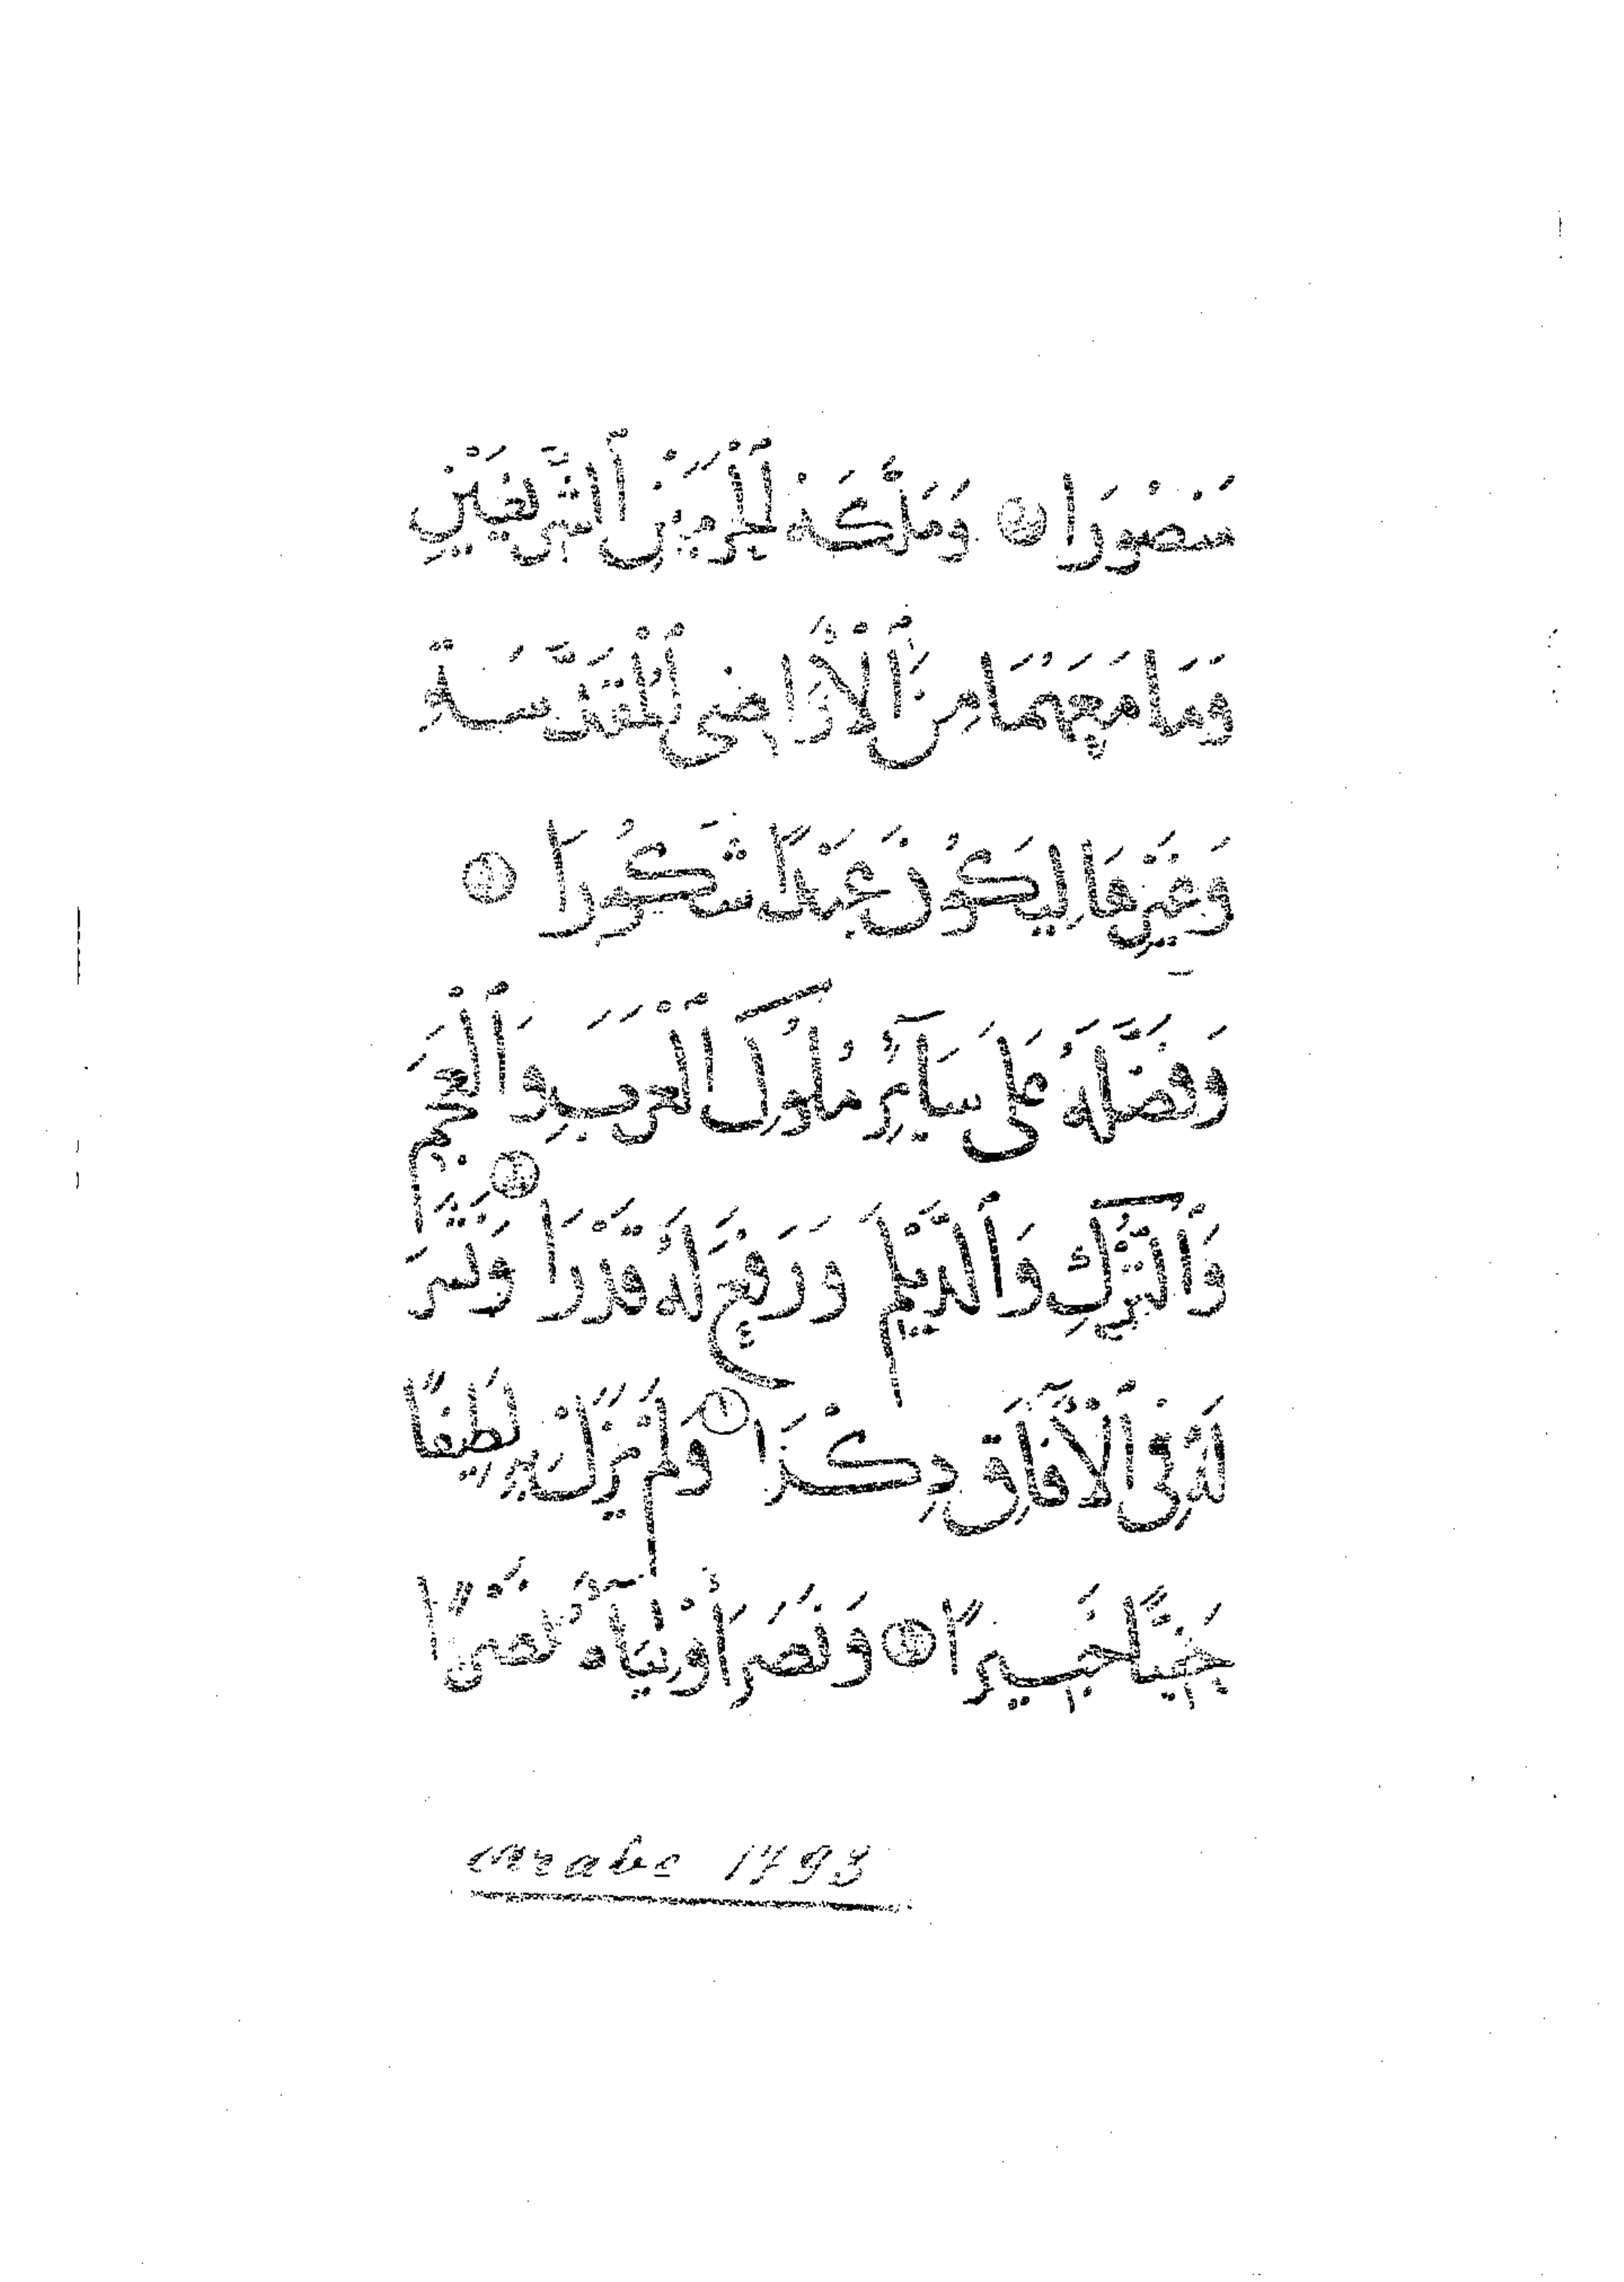 مَنْصُورَا وَمَلَّكَهُ ٱلْحَرَمَيْنِ ٱلشَّرِيفَيْنِ
وَمَا مَعَهُمَا مِنَ ٱلْأَرَاضِى ٱلْمُقَدَّسَةِ
وَغَيْرِهَا لِيَكُونَ عَبْدًا شَكُورَا
وَفَضَّلَهُ عَلَى سَآئِرِ مُلُوكِ ٱلْعَرَبِ وَٱلْعَجَمِ
وَٱلتُّرْكِ وَٱلدَّيْلَمِ وَرَفَعَ لَهُ قَدْرَا وَنَشَرَ
لَهُ فِى ٱلْآفَاقِ ذِكْرَا وَلَمْ يَزَلْ بِهِ لَطِيفًا
خَبِيرًا وَنَصَرَ أَوْلِيَآءَهُ
Arabe 1793